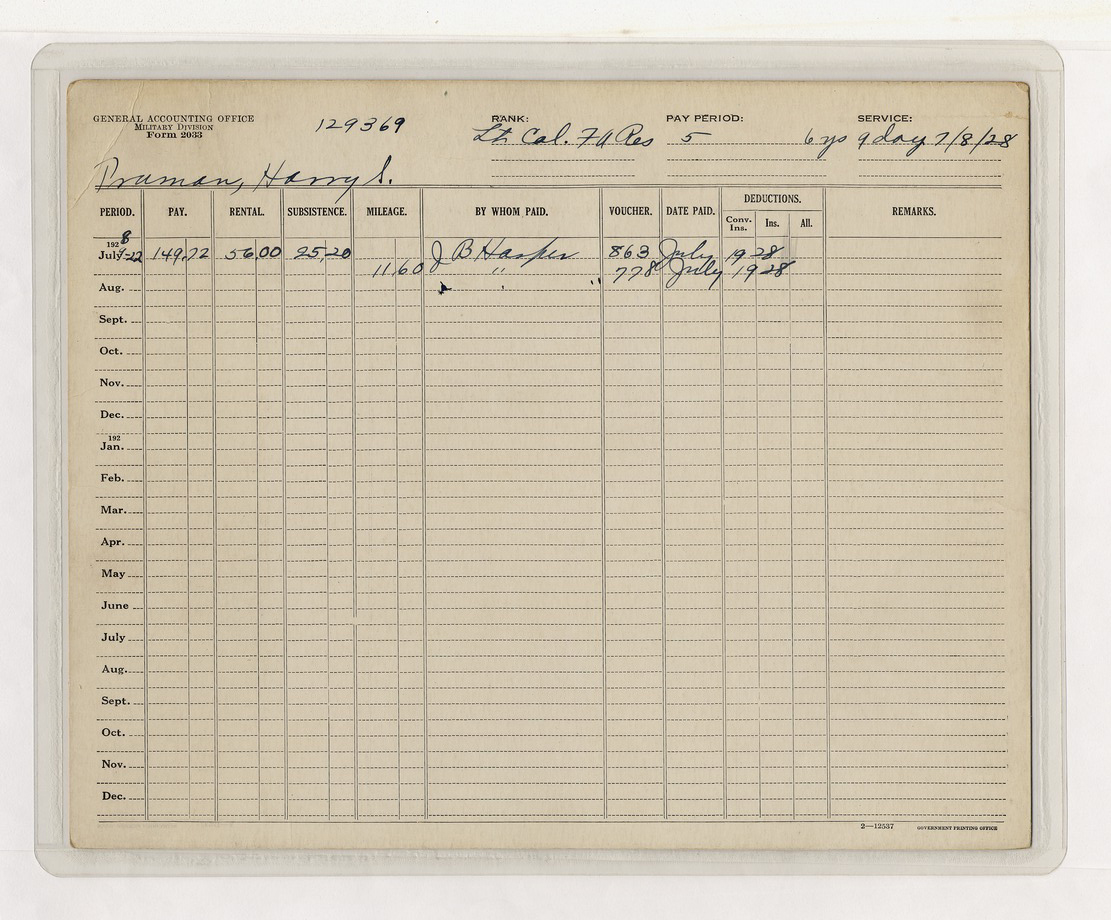 GENERAL ACCOUNTING OFFICE
MILITARY DIVISION
Form 2033
129369
RANK:
Lt Col. FA Res
PAY PERIOD:
5
SERVICE:
6 ys 9 day 7/8/28
Truman, Harry S.
PERIOD. PAY. RENTAL. SUBSISTENCE. MILEAGE. BY WHOM PAID. VOUCHER. DATE PAID. DEDUCTIONS. REMARKS.
Conv. Ins. Ins. All.
1928
July 9-22 149.72 56.00 25.20 J B Harper 863 July 1928
11.60 " 778 July 1928
Aug. " "
Sept.
Oct.
Nov.
Dec.
192
Jan.
Feb.
Mar.
Apr.
May
June
July
Aug.
Sept.
Oct.
Nov.
Dec.
2—12537 GOVERNMENT PRINTING OFFICE